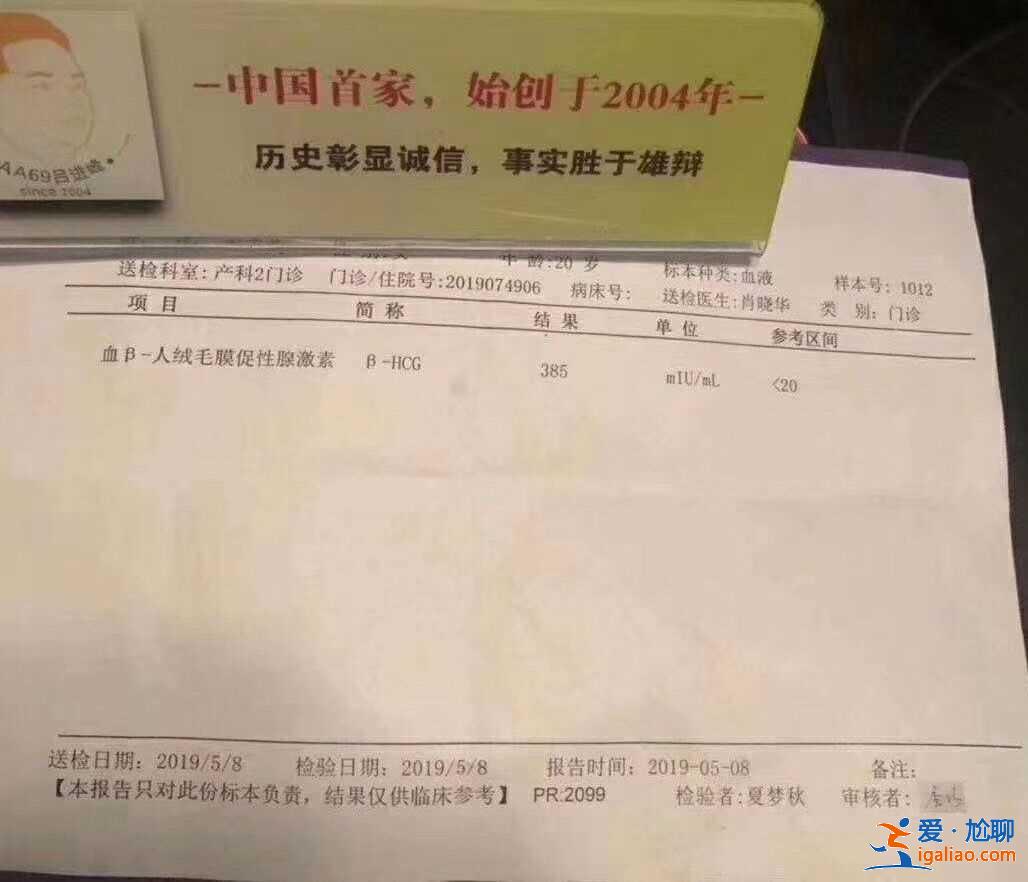 －中国首家，始创于2004年－
历史彰显诚信，事实胜于雄辩
AA69吕进峰
since 2004
年龄:20 岁
送检科室:产科2门诊 门诊/住院号:2019074906 病床号: 标本种类:血液 样本号: 1012
送检医生:肖晓华 类 别: 门诊
项 目 简 称 结 果 单 位 参考区间
血β-人绒毛膜促性腺激素 β-HCG 385 mIU/mL <20
送检日期: 2019/5/8 检验日期: 2019/5/8 报告时间: 2019-05-08 备注:
【本报告只对此份标本负责，结果仅供临床参考】 PR:2099 检验者:夏梦秋 审核者:
爱·尬聊
igaliao.com